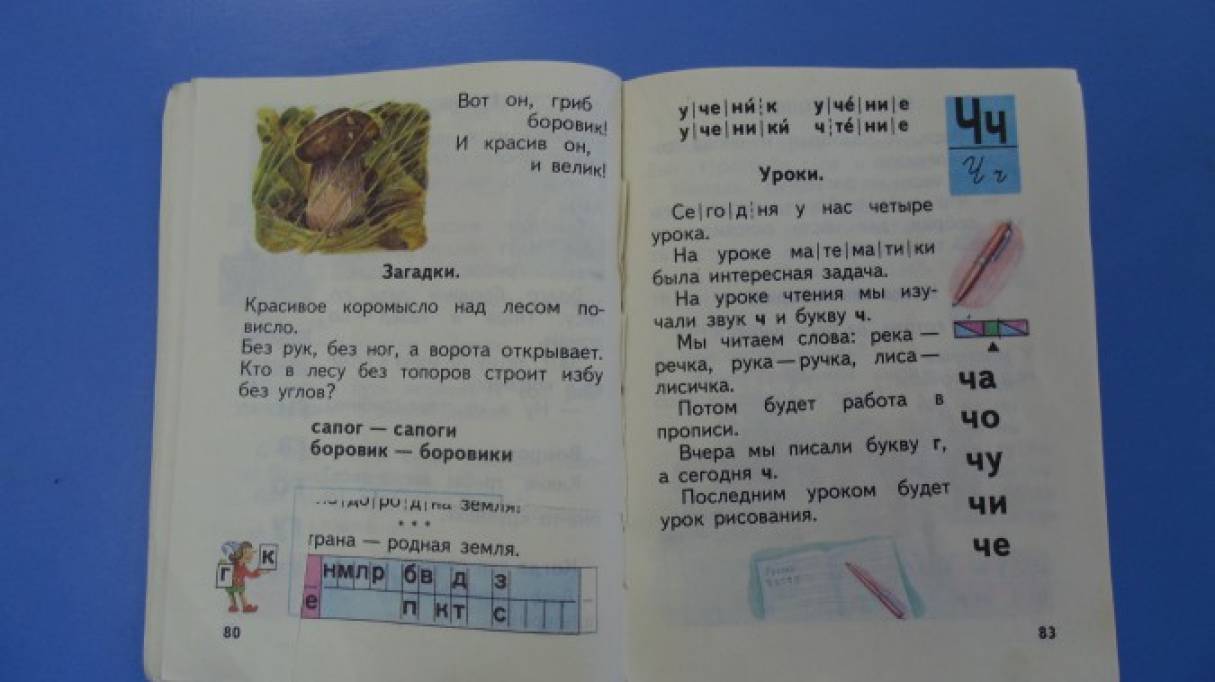 Вот он, гриб
боровик!
И красив он,
и велик!
Загадки.
Красивое коромысло над лесом по-
висло.
Без рук, без ног, а ворота открывает.
Кто в лесу без топоров строит избу
без углов?
сапог — сапоги
боровик — боровики
до|ро|д|на земля!
* * *
трана — родная земля.
г к
н м л р б в д з
е п к т с
80
у|че|ни́|к у|че́|ни|е
у|че|ни|ки́ ч|те́|ни|е
Чч
Чч
Уроки.
Се|го|д|ня у нас четыре
урока.
На уроке ма|те|ма|ти|ки
была интересная задача.
На уроке чтения мы изу-
чали звук ч и букву ч.
Мы читаем слова: река —
речка, рука — ручка, лиса —
лисичка.
Потом будет работа в
прописи.
Вчера мы писали букву г,
а сегодня ч.
Последним уроком будет
урок рисования.
ча
чо
чу
чи
че
83